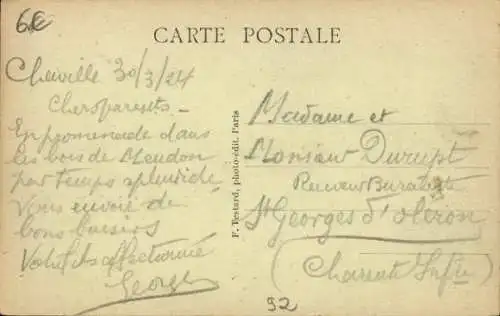 6€
CARTE POSTALE
Chaville 30/3/24
Chers parents -
En promenade dans
les bois de Meudon
par temps splendide
Vous envoie de
bons baisers
Votre fils affectionné
Georges
F. Testard, photo-édit. Paris
Madame et
Monsieur Durupt
Receveur Buraliste
St Georges d'oléron
(Charente Infre)
92